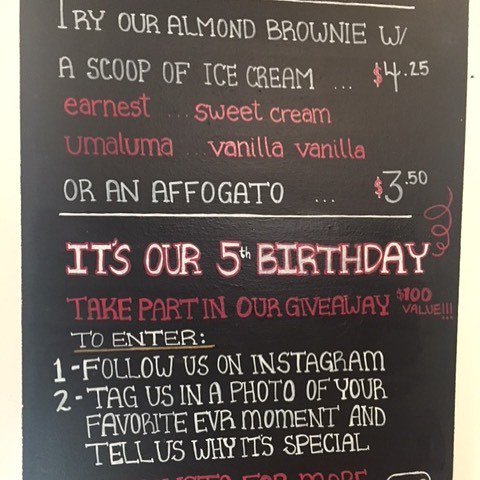 TRY OUR ALMOND BROWNIE W/
A SCOOP OF ICE CREAM ... $4.25
earnest ... sweet cream
umaluma ... vanilla vanilla
OR AN AFFOGATO ... $3.50
IT'S OUR 5th BIRTHDAY
TAKE PART IN OUR GIVEAWAY $100 VALUE!!!
TO ENTER:
1-FOLLOW US ON INSTAGRAM
2-TAG US IN A PHOTO OF YOUR
FAVORITE EVR MOMENT AND
TELL US WHY IT'S SPECIAL
FOR MORE